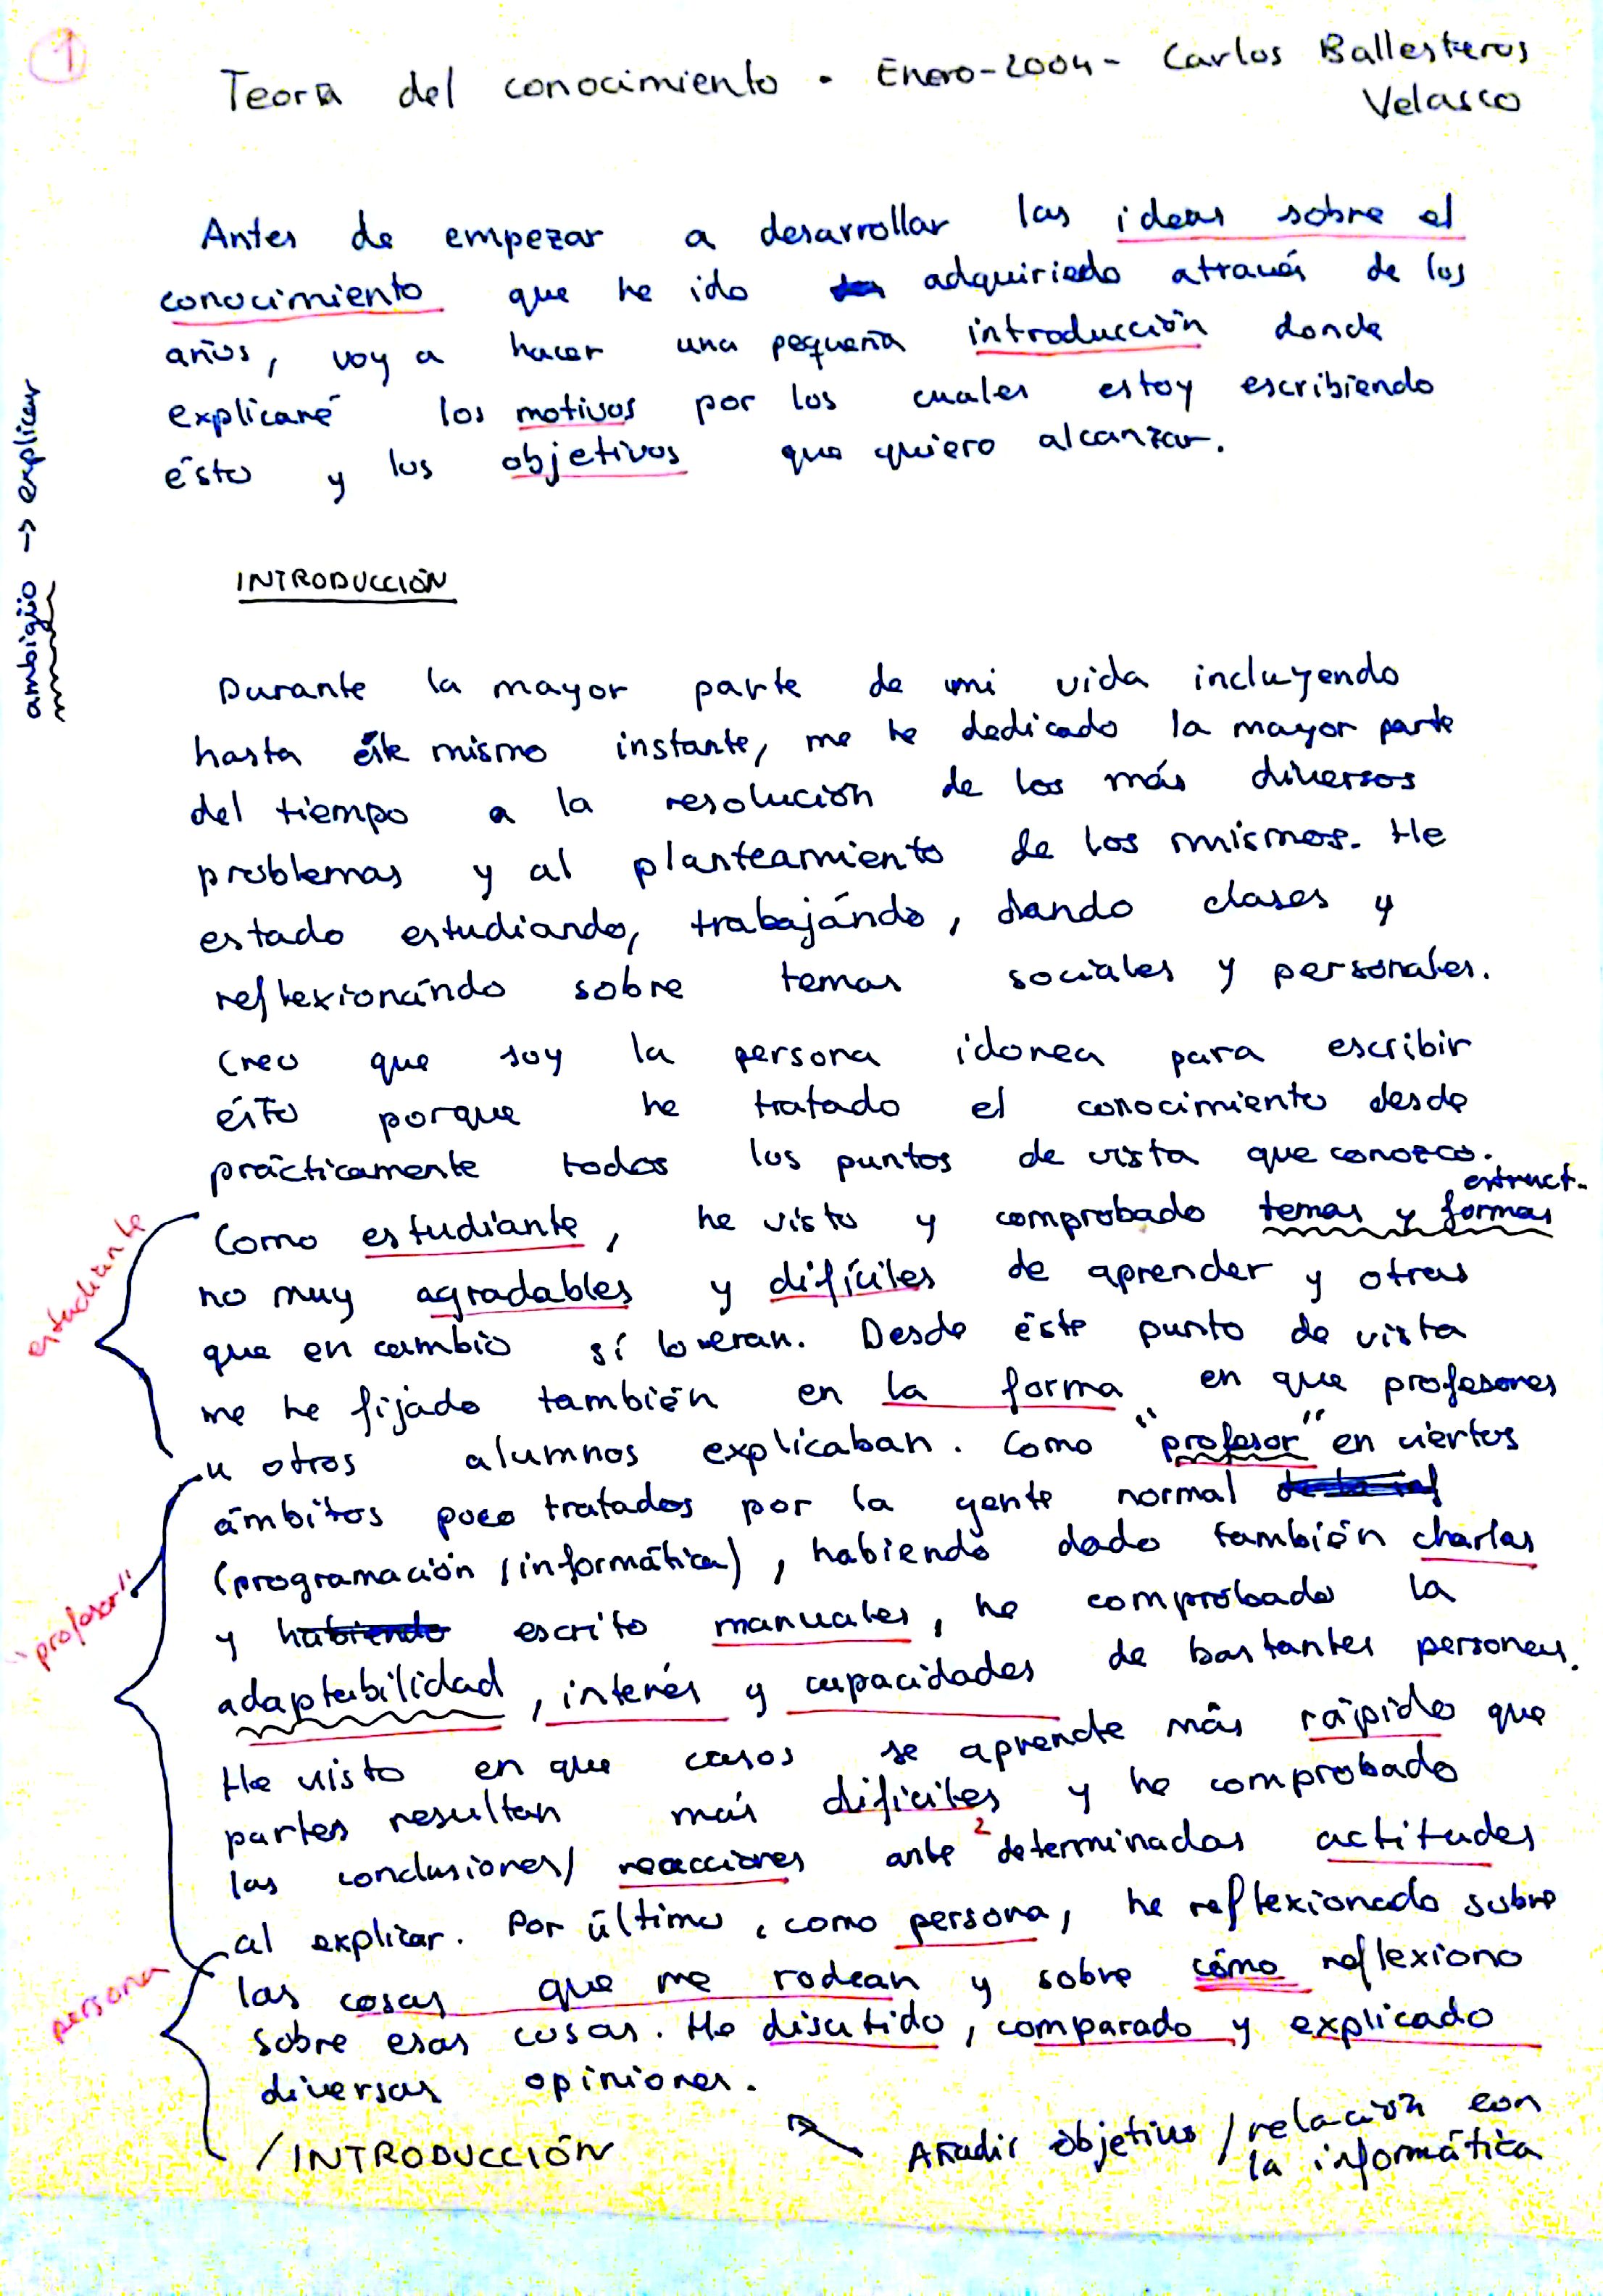 1
Teoría del conocimiento - Enero-2004- Carlos Ballesteros
Velasco
Antes de empezar a desarrollar las ideas sobre el
conocimiento que he ido adquiriendo através de los
años, voy a hacer una pequeña introducción donde
explicaré los motivos por los cuales estoy escribiendo
ésto y los objetivos que quiero alcanzar.
ambigüo → explicar
INTRODUCCIÓN
Durante la mayor parte de mi vida incluyendo
hasta éste mismo instante, me he dedicado la mayor parte
del tiempo a la resolución de los más diversos
problemas y al planteamiento de los mismos. He
estado estudiando, trabajándo, dando clases y
reflexionándo sobre temas sociales y personales.
Creo que soy la persona idonea para escribir
ésto porque he tratado el conocimiento desde
prácticamente todos los puntos de vista que conozco.
estruct.
Como estudiante, he visto y comprobado temas y formas
no muy agradables y difíciles de aprender y otras
que en cambio sí lo eran. Desde éste punto de vista
me he fijado también en la forma en que profesores
u otros alumnos explicaban. Como "profesor" en ciertos
ámbitos poco tratados por la gente normal
(programación/informática), habiendo dado también charlas
y habiendo escrito manuales, he comprobado la
adaptabilidad, interés y capacidades de bastantes personas.
He visto en que casos se aprende más rápido que
partes resultan más difíciles y he comprobado
las conclusiones/reacciones ante 2 determinadas actitudes
al explicar. Por último, como persona, he reflexionado sobre
las cosas que me rodean y sobre cómo reflexiono
sobre esas cosas. He discutido, comparado y explicado
diversas opiniones.
estudiante
"profesor"
persona
/INTRODUCCIÓN
Añadir objetivos / relación con
la informática